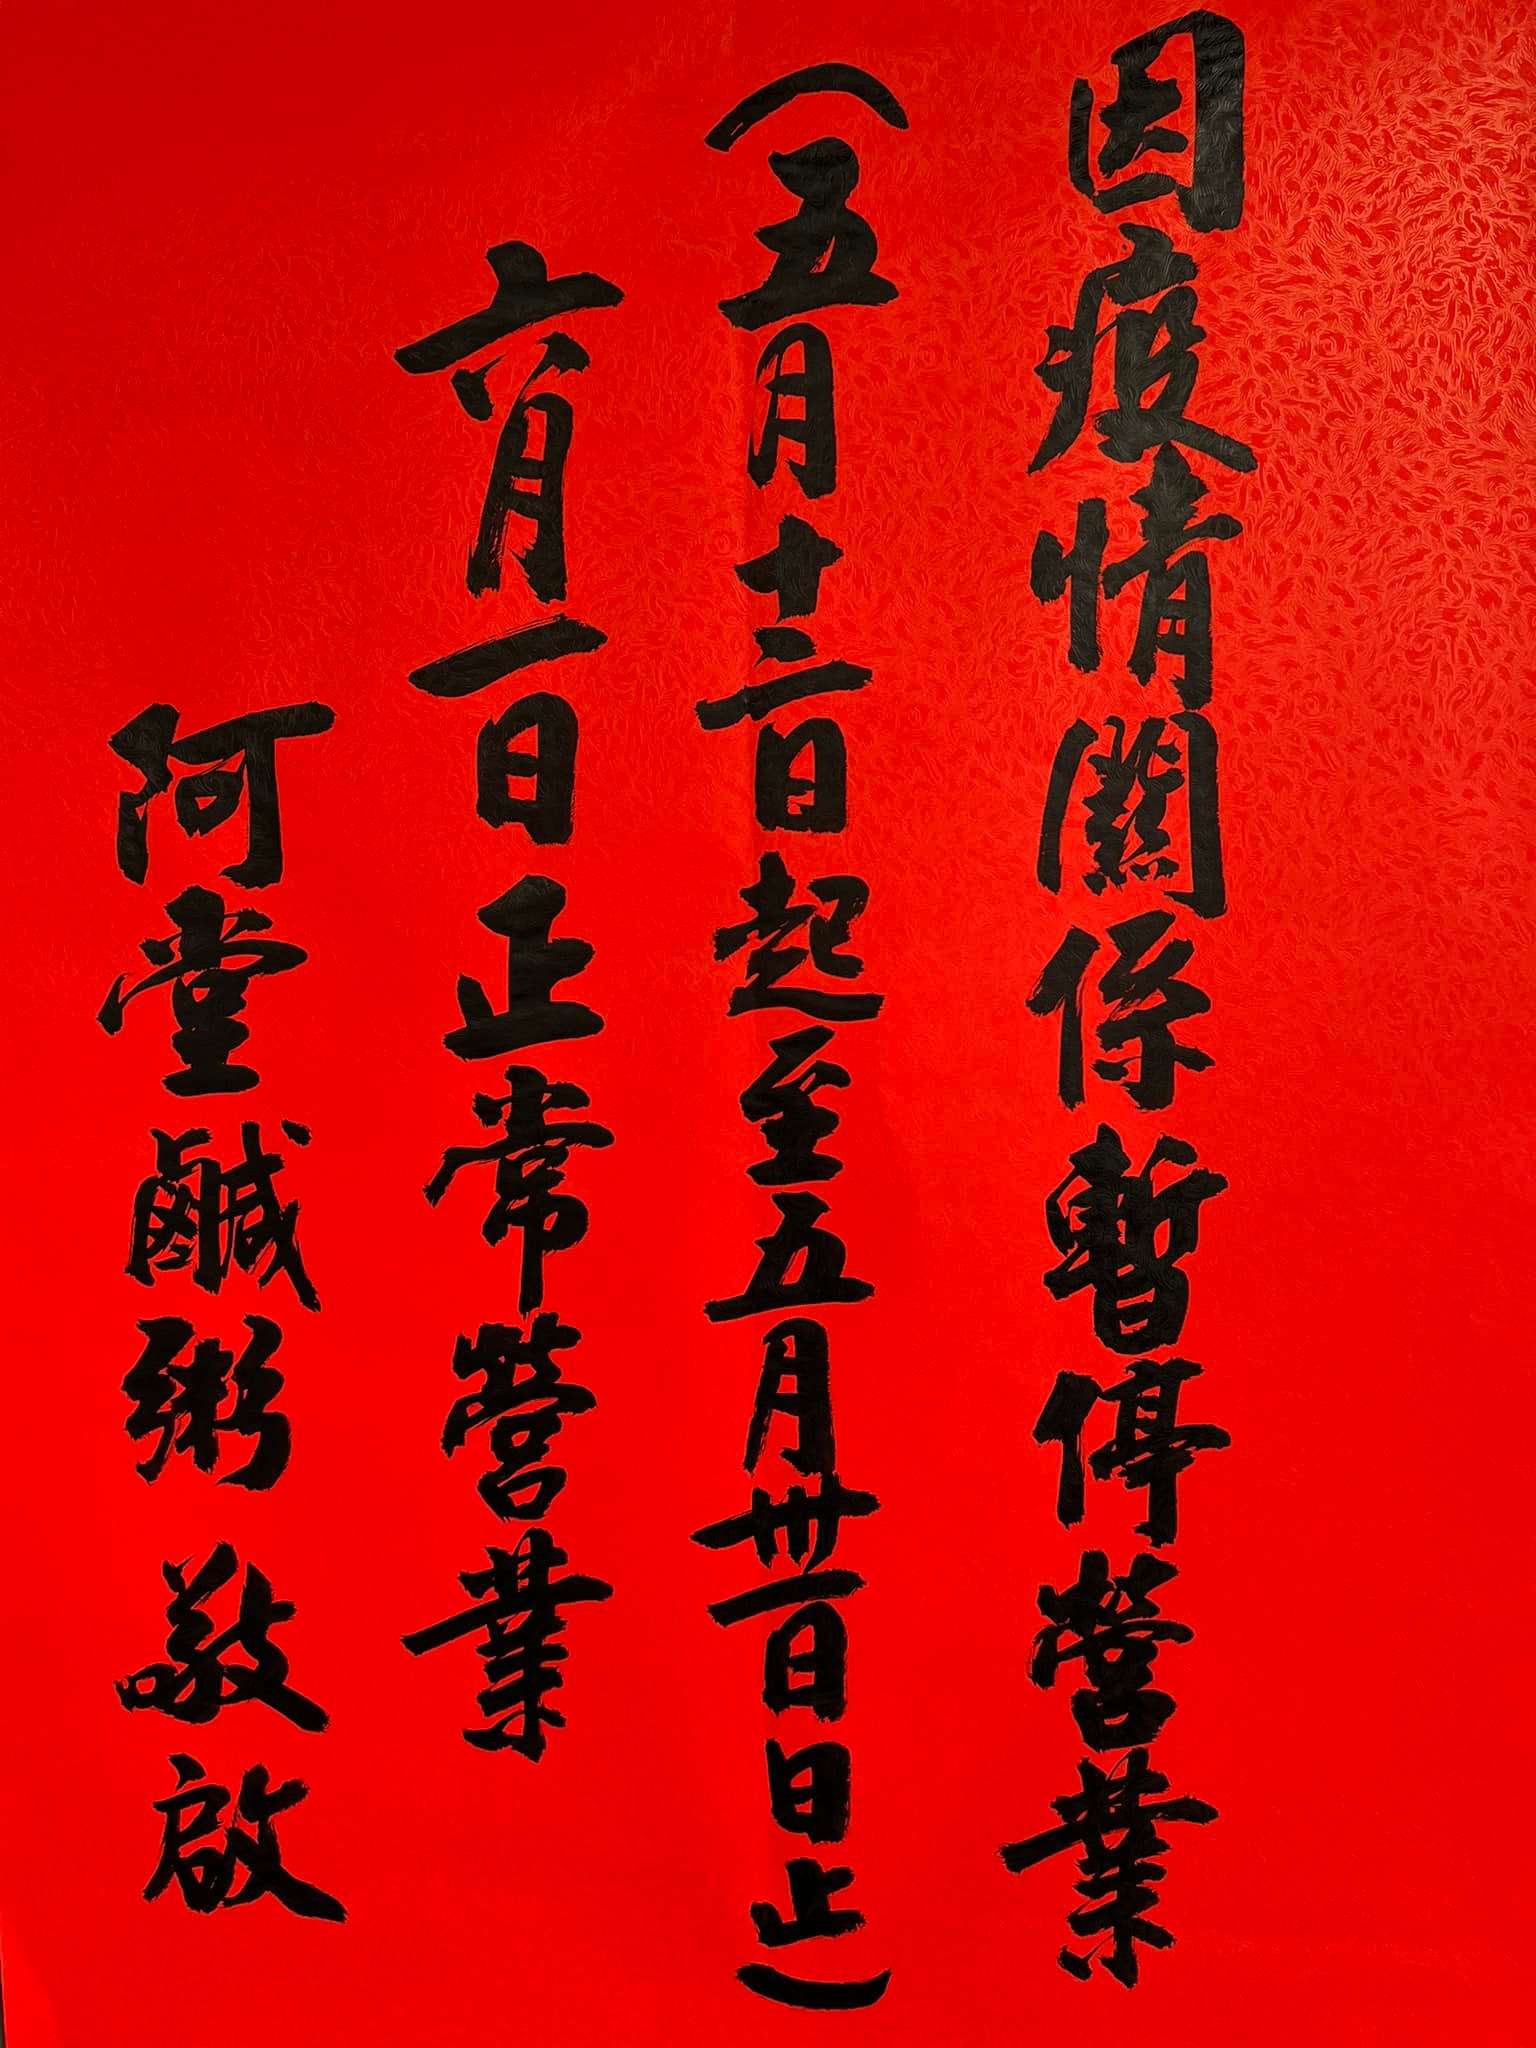 因疫情關係暫停營業
（五月十二日起至五月卅一日日止）
六月一日正常營業
阿堂鹹粥 敬啟